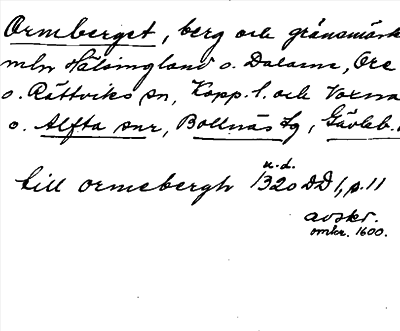 Ormberget, berg och gränsmärk
mln Hälsingland o. Dalarne, Ore
o. Rättviks sn, Kopp. l. och Voxna
o. Alfta snr, Bollnäs tg, Gävleb.
till ormebergh u.d. 1320 DD 1, p. 11
avskr.
omkr. 1600.